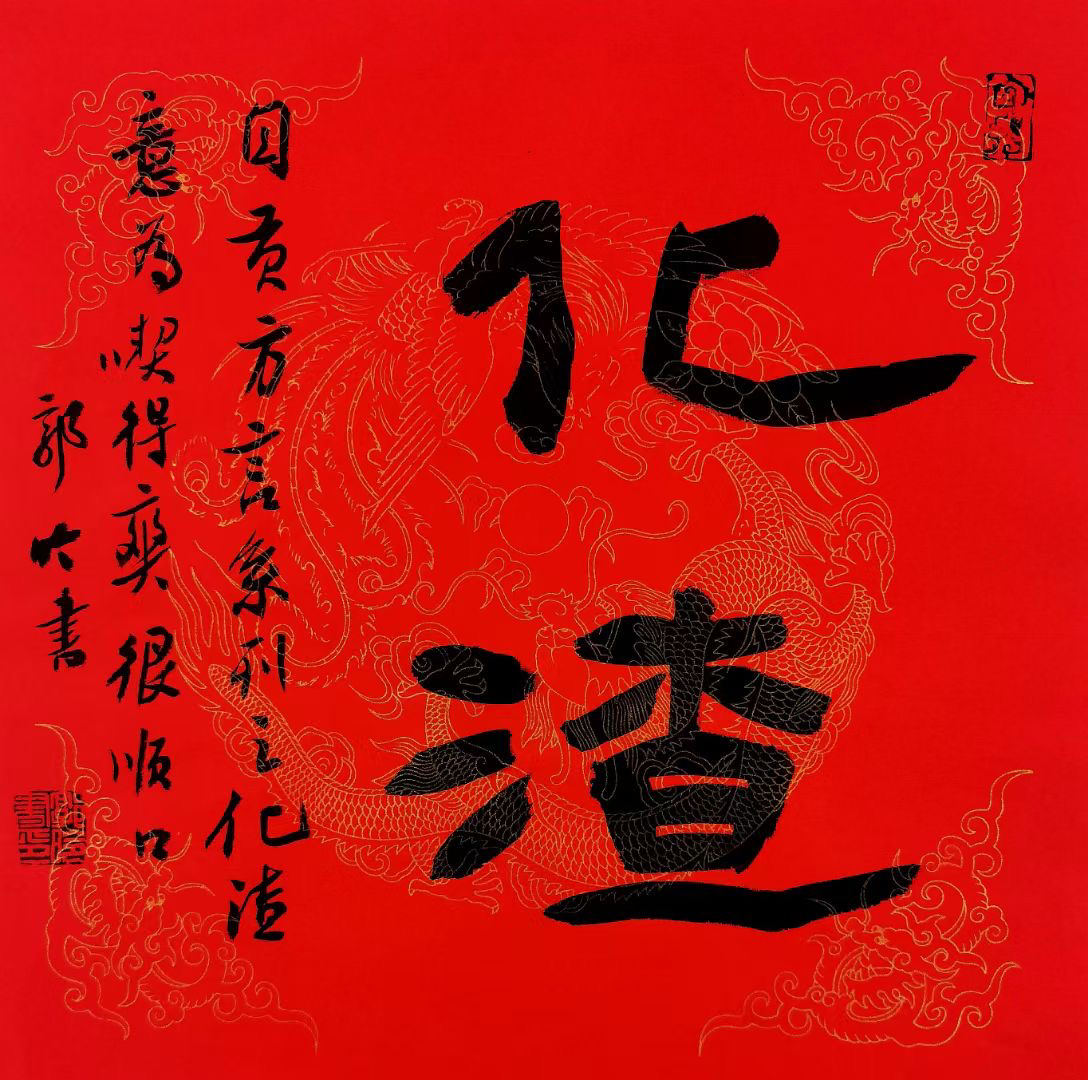 化渣
自贡方言系列之化渣
意為喫得爽很顺口
郭大书